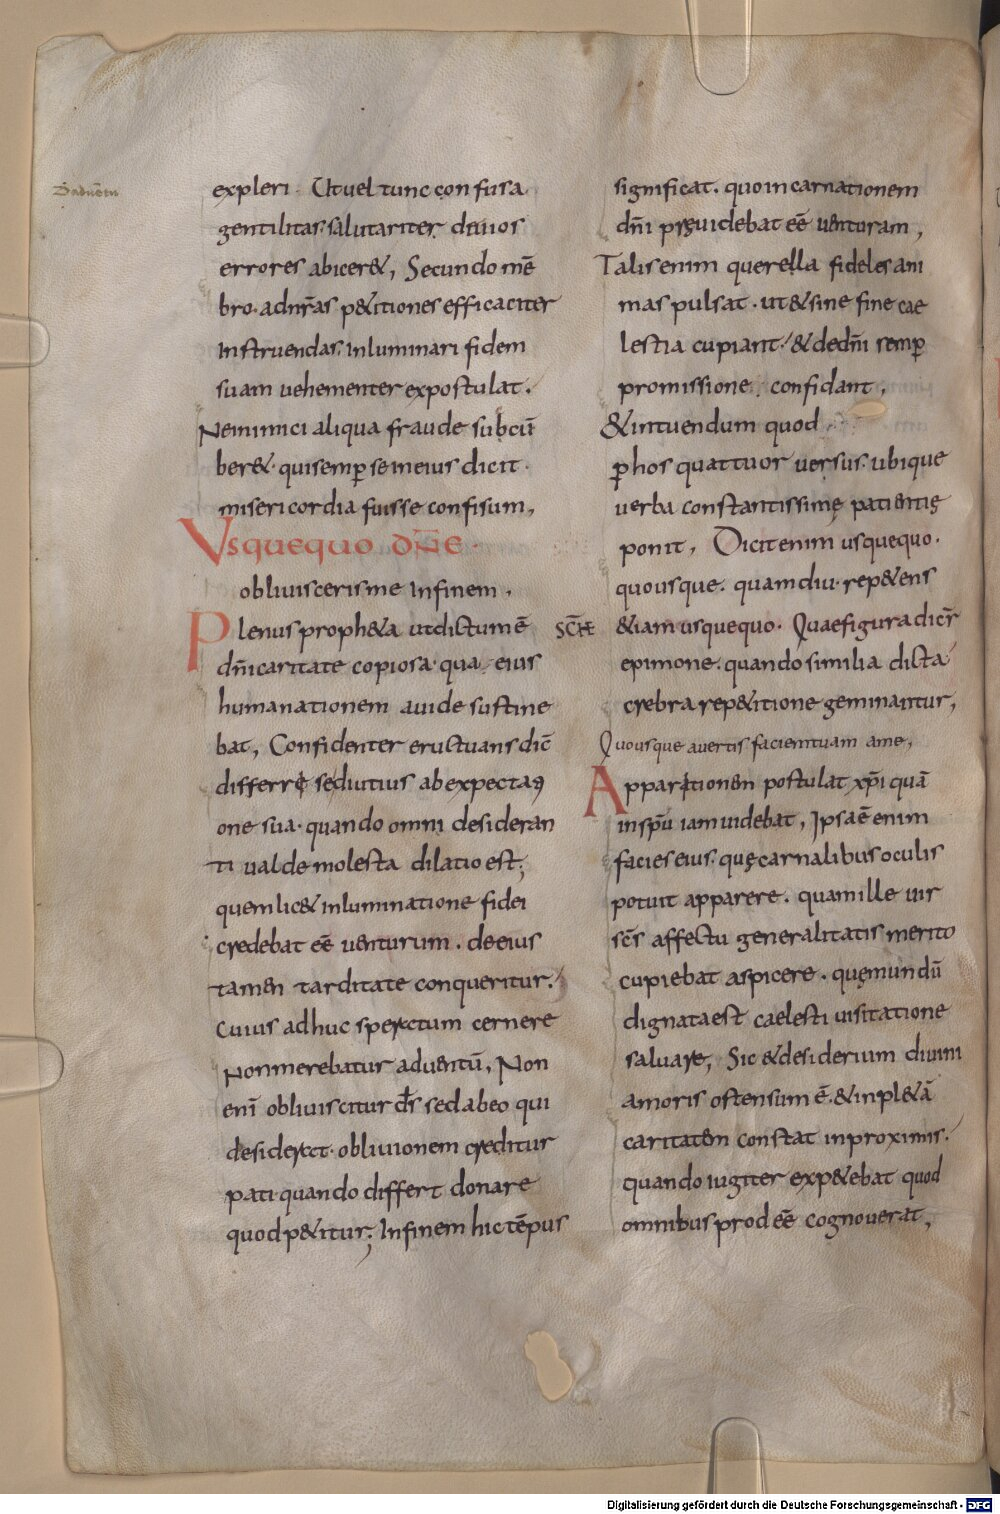 D aduētu
expleri. Ut uel tunc confusa
gentilitas. salutariter diuios
errores abicer&, Secundo mē
bro. ad nr̄as p&itiones efficaciter
Instruendas. Inluminari fidem
suam uehementer expostulat.
Ne inimici aliqua fraude subcū
ber&. qui semꝑ se in eius dicit
misericordia fuisse confisum,
Vsquequo dn̄e.
obliuisceris me Infinem.
Plenus proph&a ut dictum ē
dn̄i caritate copiosa. qua eius
humanationem auide sustine
bat, Confidenter eructuans dic̄
differre se diutius ab expectati
one sua. quando omni desideran
ti ualde molesta dilatio est;
quem lic& inluminatione fidei
credebat eē uenturum. de eius
tamen tarditate conqueritur.
Cuius adhuc sperctum cernere
Non merebatur aduentū, Non
enī obliuiscitur d̄s sed abeo qui
desiderct. obliuionem creditur
pati. quando differt donare
quod p&itur; Infinem hic tēpus
significat. quo incarnationem
dn̄i pręuidebat eē uenturam,
Talis enim querella fideles ani
mas pulsat. ut & sine fine cae
lestia cupiant. & de dn̄i semꝑ
promissione confidant,
& intuendum quod
ꝑ hos quattuor uersus. ubique
uerba constantissimę patientię
ponit, Dicit enim usquequo.
quousque. quamdiu. rep&ens
SCHE
&iam usquequo. Quae figura dicr̄
epimone. quando similia dicta
crebra rep&itione geminantur,
Quousque auertis faciem tuam a me,
Apparitionem postulat xp̄i quā
in sp̄u iam uidebat, Ipsa ē enim
facies eius. quę carnalibus oculis
potuit apparere. quam ille uir
sc̄s affectu generalitatis merito
cupiebat aspicere. quę mundū
dignata est caelesti uisitatione
saluare, Sic & desiderium diuini
amoris ostensum ē. & inpl&ā
caritatem constat in proximis.
quando iugiter exp&ebat quod
omnibus prodeē cognouerat,
Digitalisierung gefördert durch die Deutsche Forschungsgemeinschaft - DFG